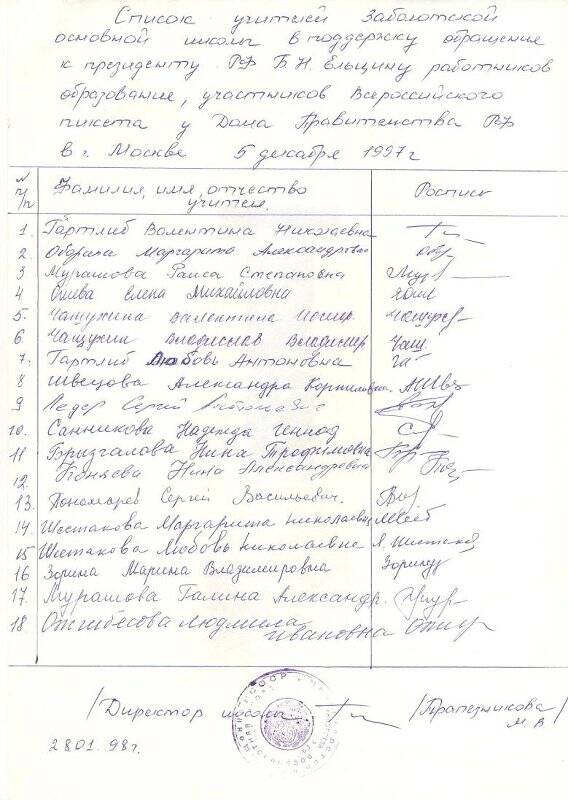 Список учителей Заболотской
основной школы в поддержку обращение
к президенту РФ Б.Н. Ельцину работников
образование, участников Всероссийского
пикета у Дома Правительства РФ
в г. Москве 5 декабря 1997г
N п/п Фамилия, имя, отчество учителя. Роспись
1. Гартлиб Валентина Николаевна
2. Оборина Маргарита Александровна
3 Мурашова Раиса Степановна
4 Ошева Елена Михайловна
5. Чащухина Валентина
6. Чащухин Владислав Владимир
7. Гартлиб Любовь Антоновна
8 Швецова Александра Корниловна
9 Ледер Сергей
10. Санникова Надежда Геннад
11 Бризгалова Нина Трофимовна
12. Коняева Нина Александровна
13. Пономарев Сергей Васильевич.
14. Шестакова Маргарита Николаевна
15 Шестакова Любовь Николаевна Л. Шестаков
16 Зорина Марина Владимировна
17. Мурашова Галина Александр.
18 Ожгибесова Людмила
Ивановна
/Директор школы /Трапезникова
М.В
28.01.98г.